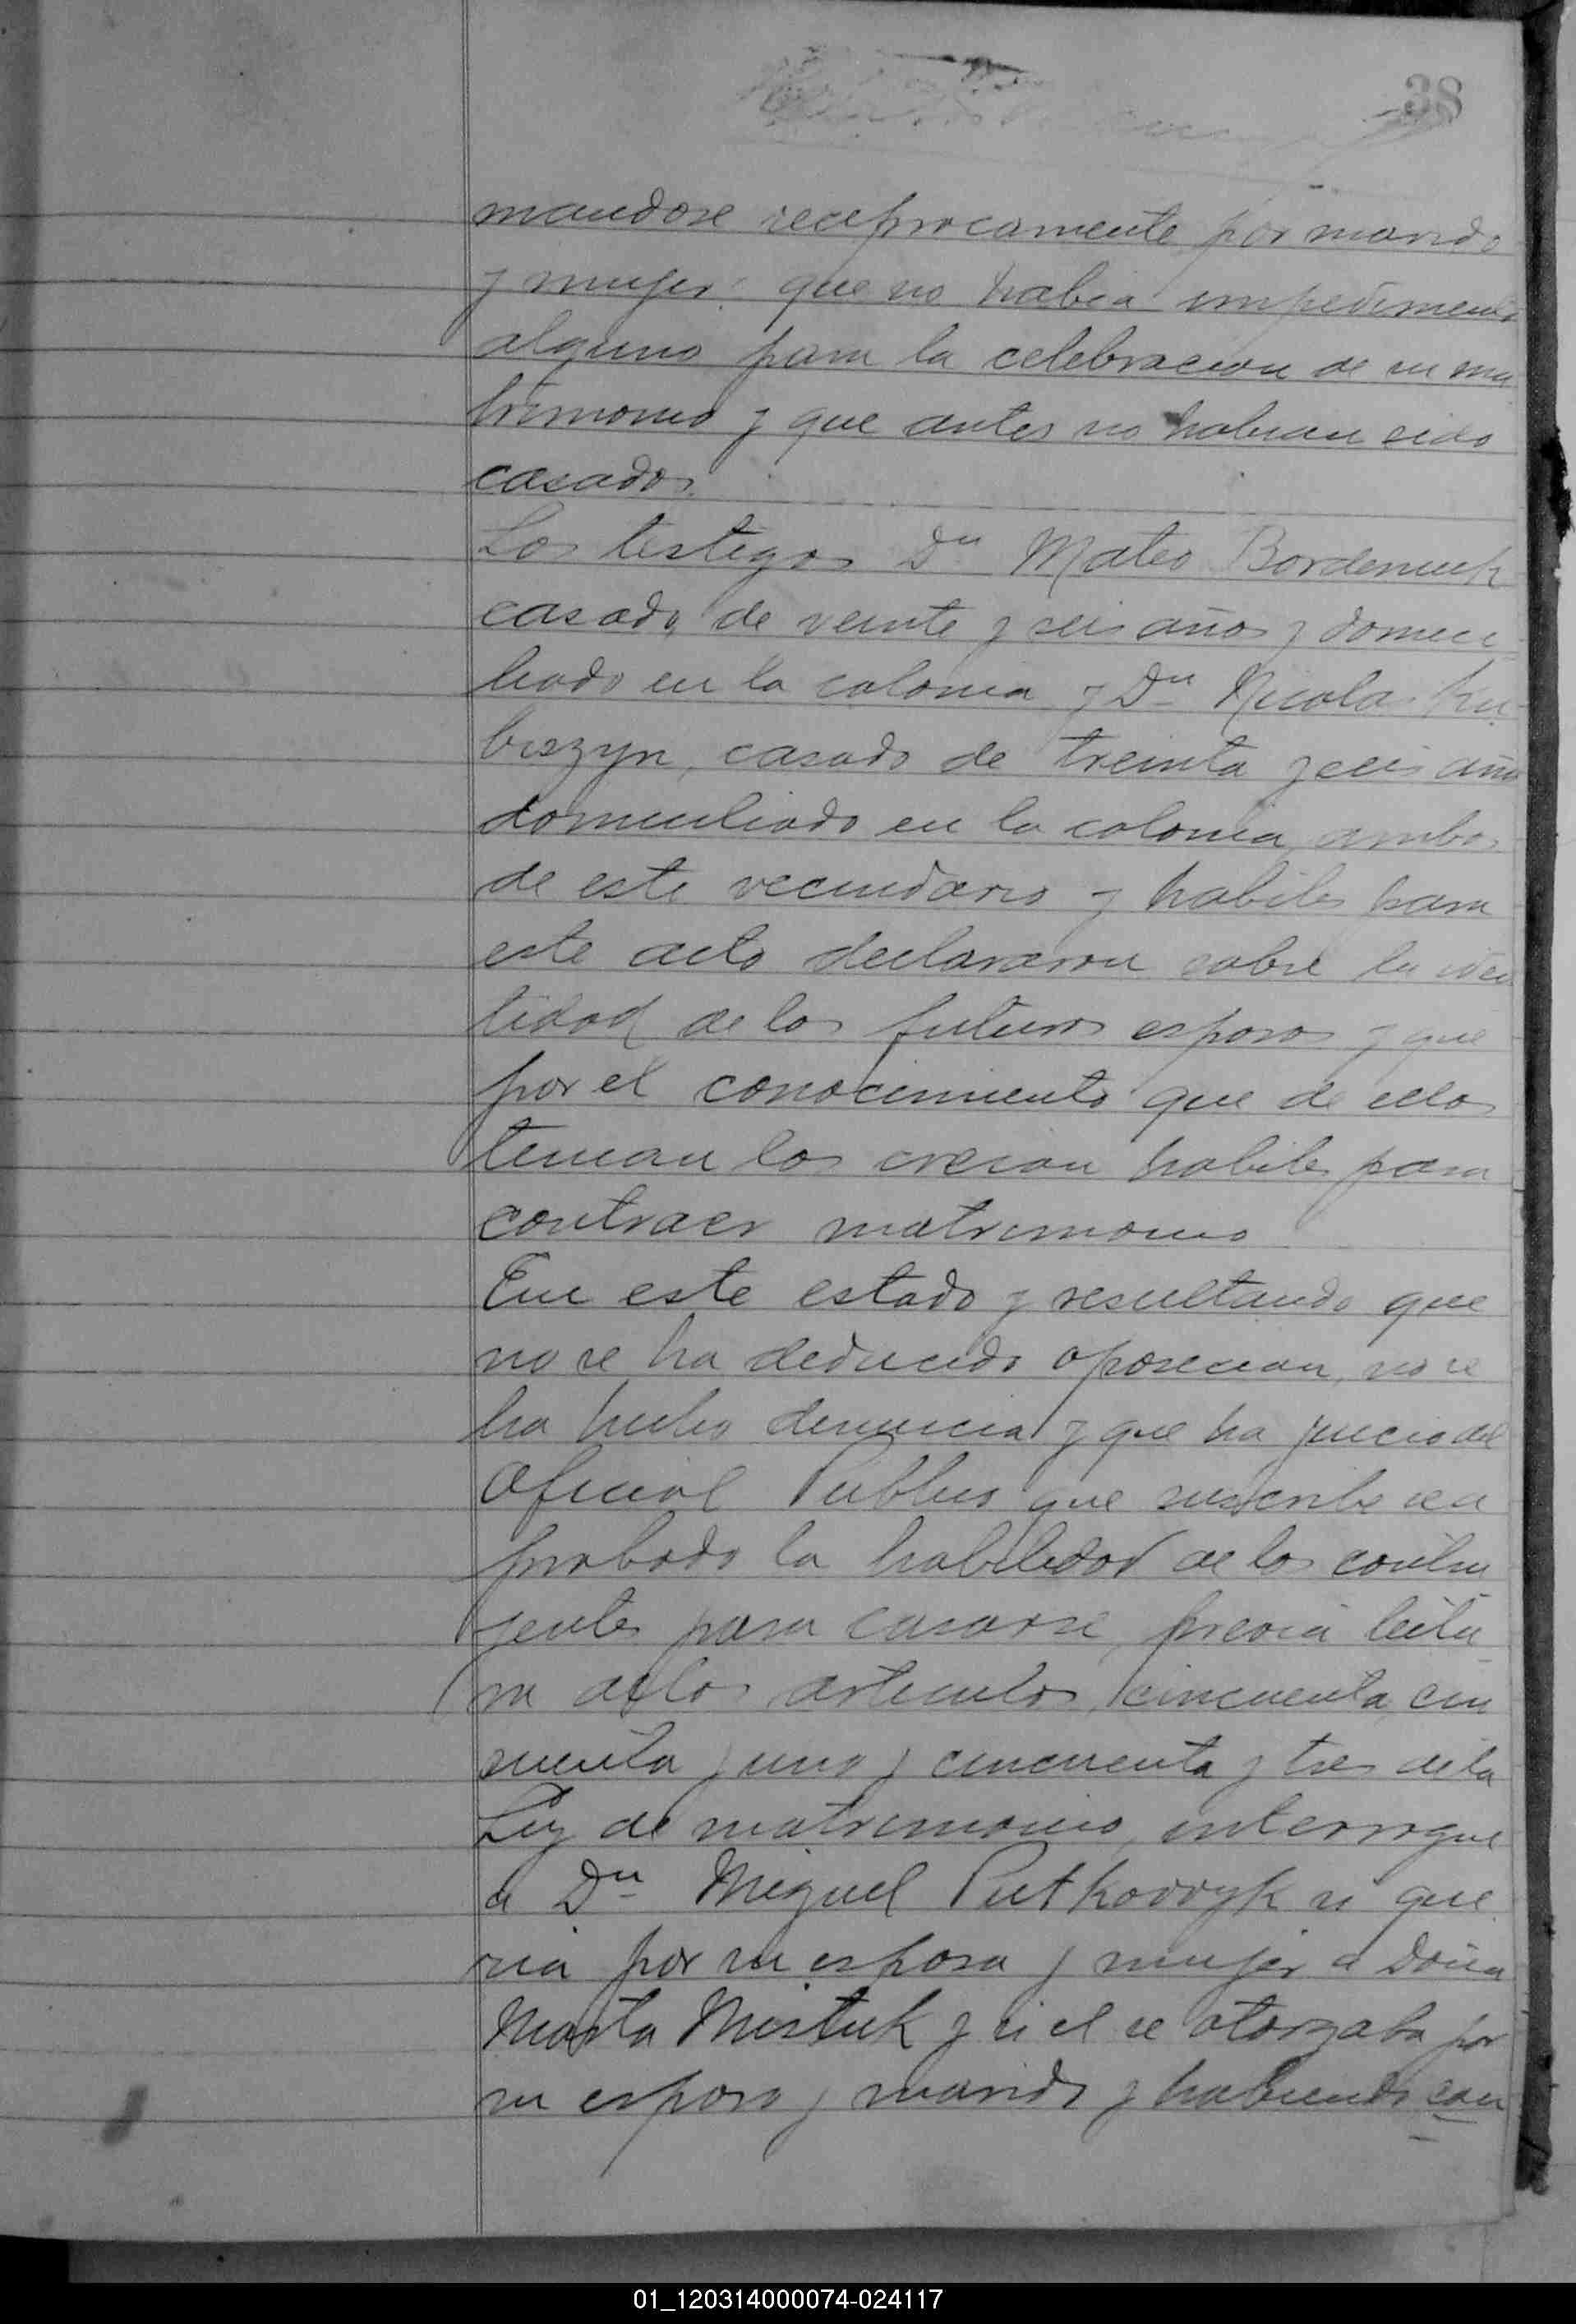 38
mandose reciprocamente por marido
y mujer: que no habia impedimento
alguno para la celebracion de su ma
trimonio y que antes no habian sido
casados.
Los testigos Dn Mateo Bordeniuk
casado, de veinte y seis años y domici
liado en la colonia y Dn Nicola Ku
biszyn, casado de treinta y seis años
domiciliado en la colonia, ambos
de este vecindario y habiles para
este acto declararon sobre la iden
tidad de los futuros esposos y que
por el conocimiento que de ellos
tenian los creian habiles para
contraer matrimonio
En este estado y resultando que
no se ha deducido oposicion, no se
ha hecho denuncia y que ha juicio del
Oficial Publico que suscribe sea
probado la habilidad de los contra
yentes para casarse, previa lectu
ra de los articulos, cincuenta, cin
cuenta y uno y cincuenta y tres de la
Ley de matrimonio, interrogue
a Dn Miguel Putkovvyk si que
ria por su esposa y mujer a Doña
Marta Mistuk y si el se otorgaba por
su esposo y marido y habiendo con
01_120314000074-024117